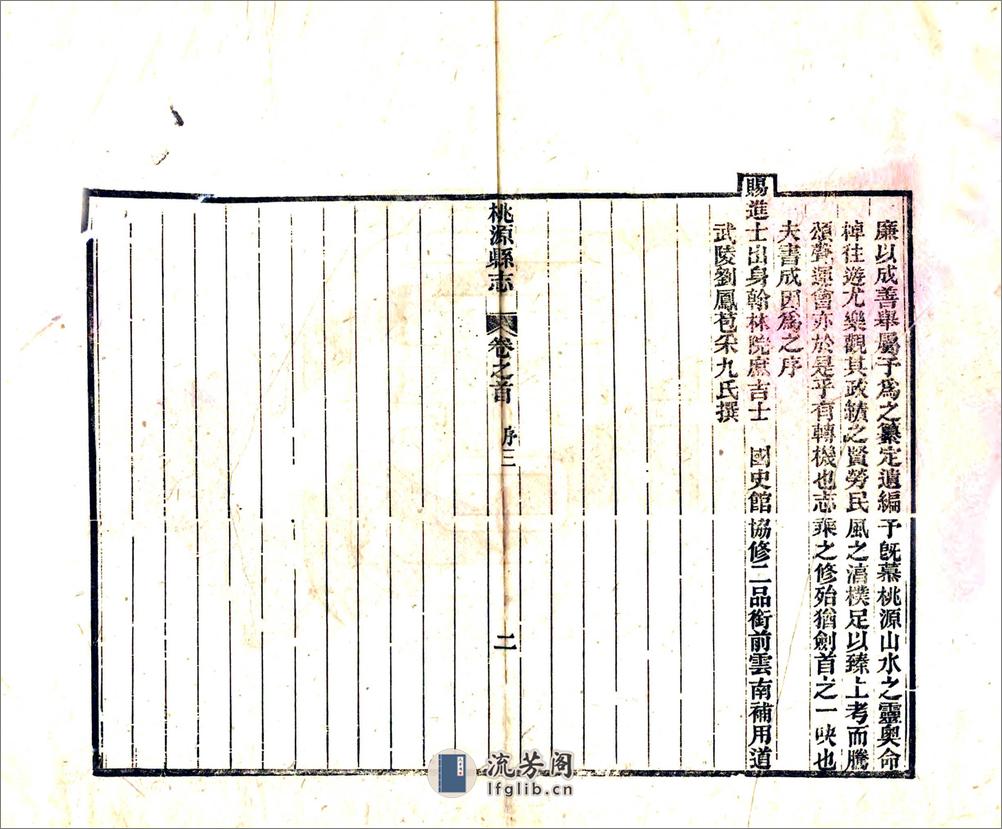 廉以成善舉屬予爲之纂定遺編予既慕桃源山水之靈奧命
棹往遊尤樂觀其政績之賢勞民風之湻樸足以臻上考而騰
頌聲運會亦於是乎有轉機也志乘之修殆猶劍首之一吷也
夫書成因爲之序
賜進士出身翰林院庶吉士 國史館協修二品銜前雲南補用道
武陵劉鳳苞采九氏撰
桃源縣志 卷之首 序三 二
流芳阁
lfglib.cn